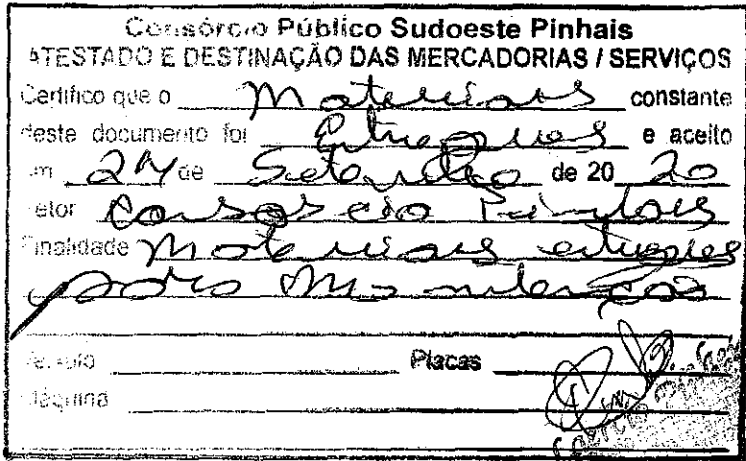 Consórcio Público Sudoeste Pinhais
ATESTADO E DESTINAÇÃO DAS MERCADORIAS / SERVIÇOS
Certifico que o Materiais constante
deste documento foi Entregues e aceito
em 24 de Setembro de 20 20
Setor Consorcio Pinhais
Finalidade Materiais entregues
para Manutenção
Veículo Placas
Máquina